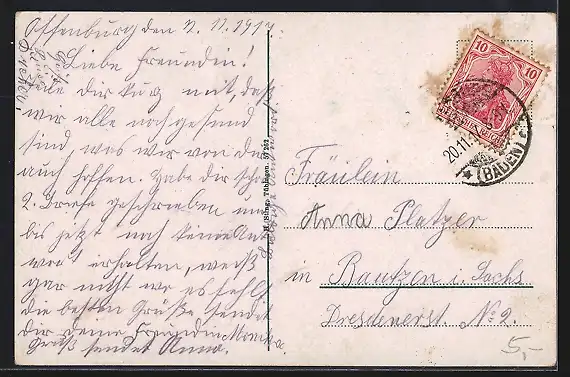 Offenburg den 2.11.1917
Liebe Freundin!
Teile dir kurz mit, daß
wir alle noch gesund
sind, was wir von dir
auch hoffen. Habe dir schon
2. Briefe geschrieben und
bis jetzt noch keine Ant
wort erhalten, weiß
gar nicht wo es fehlt
die besten Grüße sendet
dir deine Freundin
Gruß sendet Anna.
10 10
20.11.
* (BADEN)
Fräulein
Anna Platzer
in Bautzen i. Sachs
Dresdenerst. No 2.
5,-